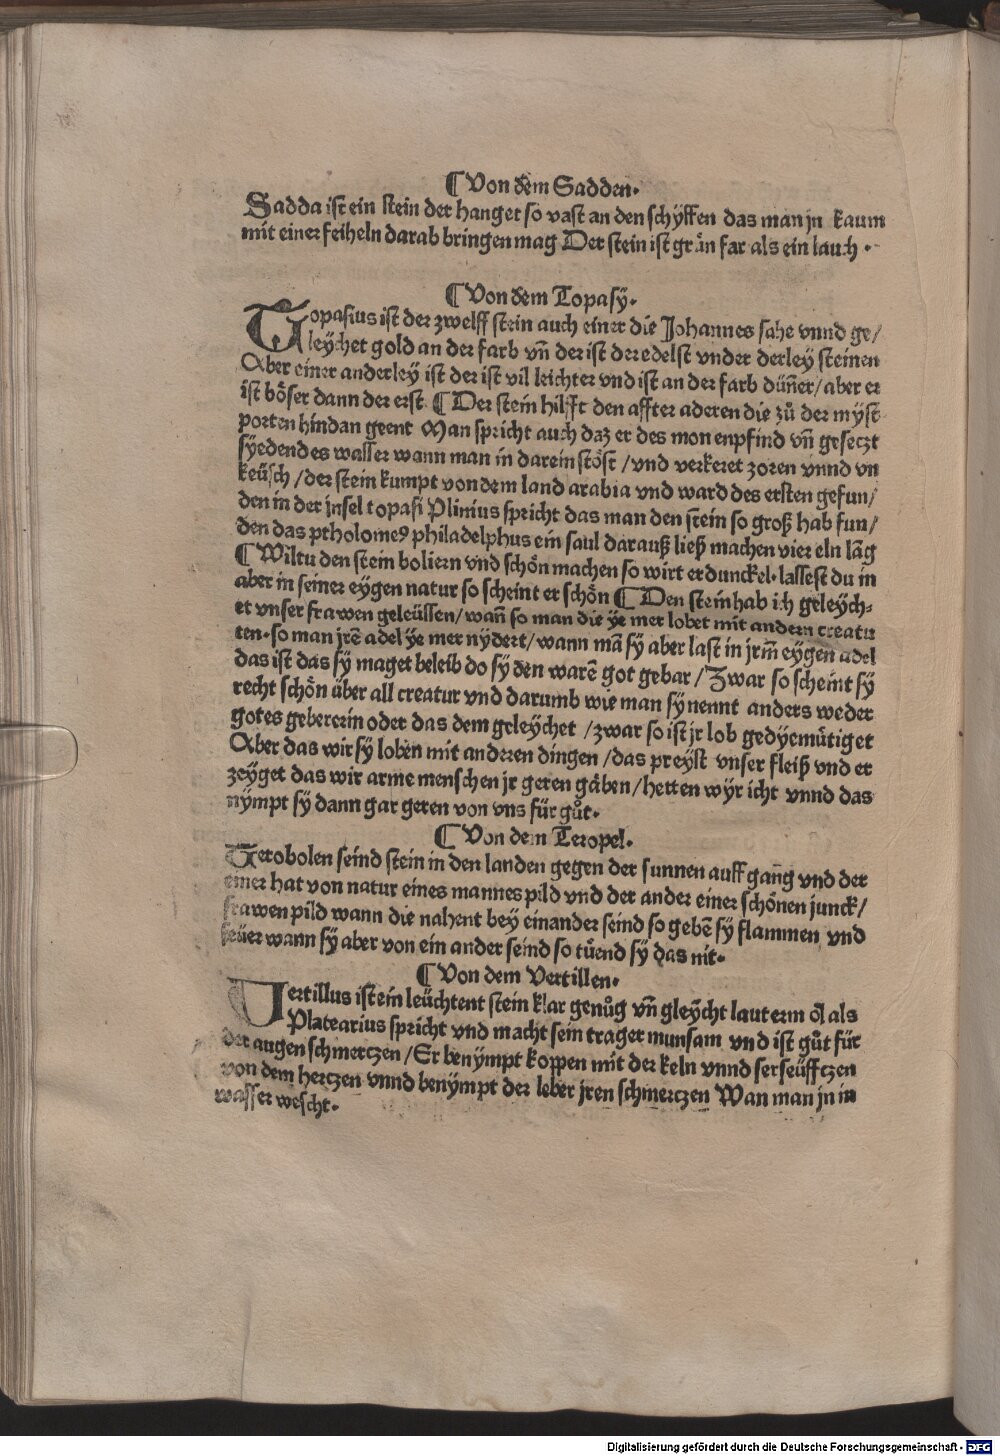 ¶ Von dem Sadden.
Sadda ist ein stein der hanget so vast an den schyffen das man jn kaum
mit einer feiheln darab bringen mag Der stein ist grün far als ein lauch.
¶ Von dem Topasÿ.
Topasius ist der zwelff stein auch einer die Johannes sahe vnnd ge/
leÿchet gold an der farb vñ der ist der edelst vnder derley steinen
Aber einer anderleÿ ist der ist vil leichter vnd ist an der farb düñer/aber er
ist böser dann der erst ¶ Der stein hilfft den affter aderen die zů der myst
porten hindan geent Man spricht auch daz er des mon enpfind vñ gesetzt
syedend es wasser wann man in darein stöst /vnd verkeret zoren vnnd vn
keüsch /der stein kumpt von dem land arabia vnd ward des ersten gefun/
den in der jnsel topasi Plinius spricht das man den stein so groß hab fun/
den das ptholomeꝰ philadelphus ein saul darauß ließ machen vier eln lãg
¶ Wiltu den stein boliern vnd schön machen so wirt er dunckel. lassest du in
aber in seiner eygen natur so scheint er schön ¶ Den stein hab ich geleych-
et vnser frawen geleüssen/ wañ so man die ye mer lobet mit andern creatu
ten. so man jrẽ adel ye mer nÿdert/ wann mã sÿ aber last in jrm̃ eÿgen adel
das ist das sÿ maget beleib do sÿ den warẽ got gebar /Zwar so scheint sÿ
recht schön über all creatur vnd darumb wie man sÿ nennt anders weder
gotes gebererin oder das dem geleÿchet /zwar so ist jr lob gedyemütiget
Aber das wir sÿ loben mit anderen dingen /das preyst vnser fleiß vnd er
zeÿget das wir arme menschen jr geren gäben/hetten wÿr icht vnnd das
nÿmpt sÿ dann gar geren von vns für gůt.
¶ Von dem Teropel.
Terobolen seind stein in den landen gegen der sunnen auff gang vnd der
einer hat von natur eines mannes pild vnd der ander einer schönen junck/
frawen pild wann die nahent bey einander seind so gebẽ sÿ flammen vnd
feüer wann sÿ aber von ein ander seind so tůend sÿ das nit.
¶ Von dem Vertillen.
Vertillus ist ein leüchtent stein klar genůg vñ gleÿcht lauterm öl als
Platearius spricht vnd macht sein trager munsam vnd ist gůt für
der augen schmertzen /Er benÿmpt koppen mit der keln vnnd ser seüfftzen
von dem hertzen vnnd benÿmpt der leber jren schmertzen Wan man jn in
wasser wescht.
Digitalisierung gefördert durch die Deutsche Forschungsgemeinschaft - DFG